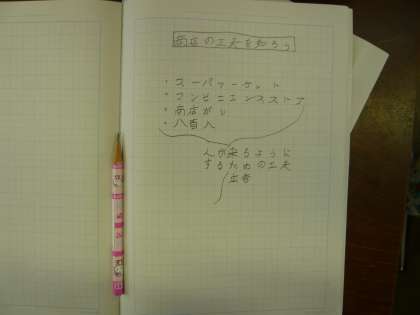 商店の工夫を知ろう
・スーパーマーケット
・コンビニエンスストア
・商店がい
・八百八
人が来るように
するための工夫